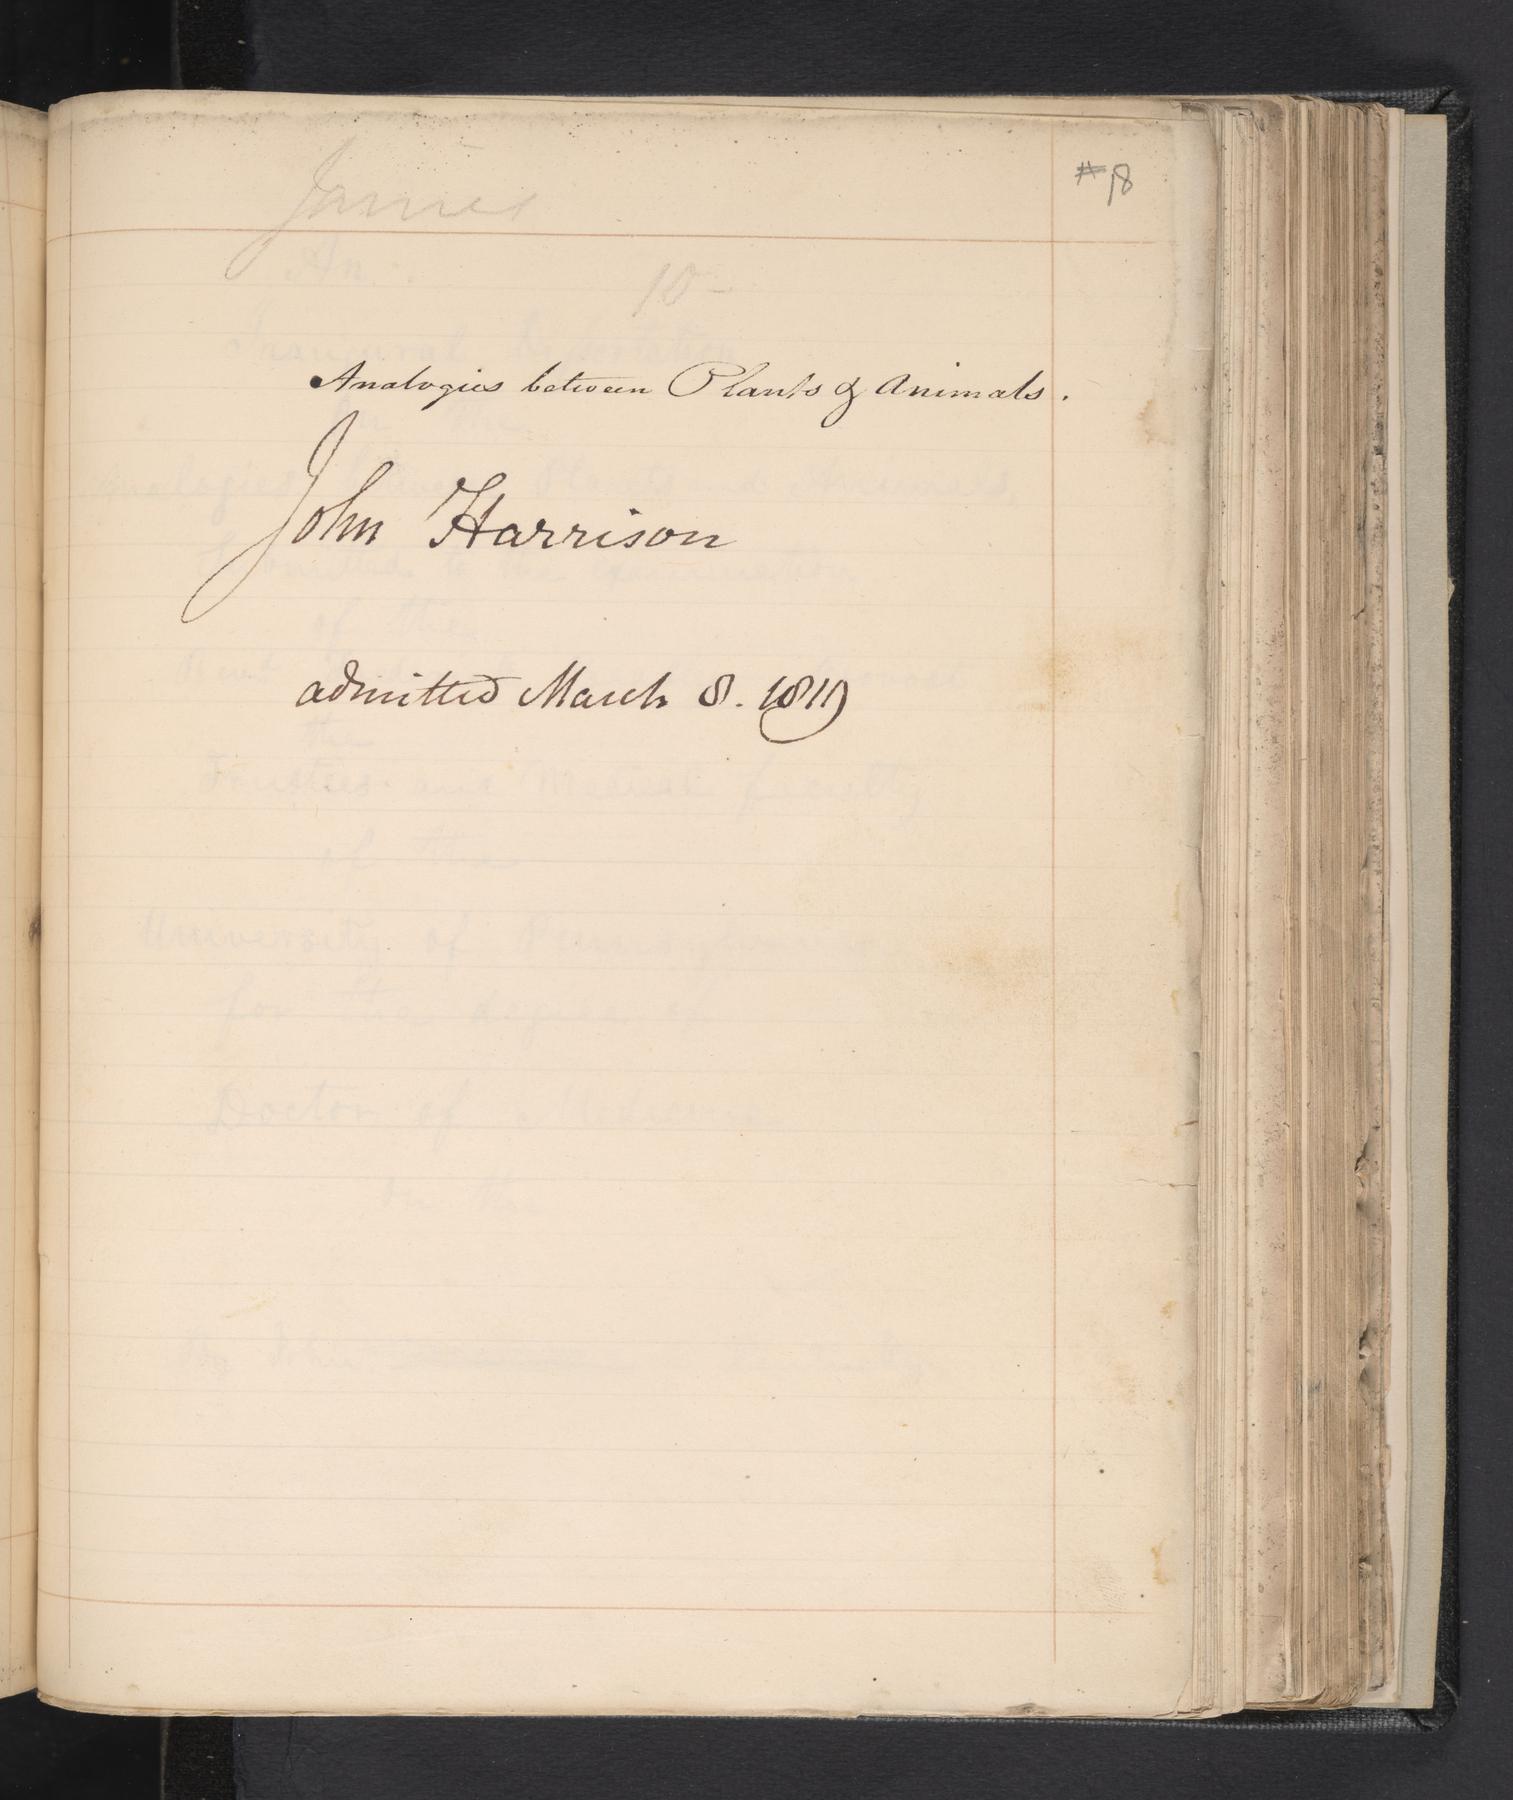 #18
James
10
Analogies between Plants & Animals.
John Harrison
admitted March 8. 1819
An
Inaugural Dissertation
on the
Analogies between Plants and Animals,
Submitted to the examination
of the
the
Trustees and Medical faculty
of the
University of Pennsylvania
for the degree of
Doctor of Medicine
on the
By John